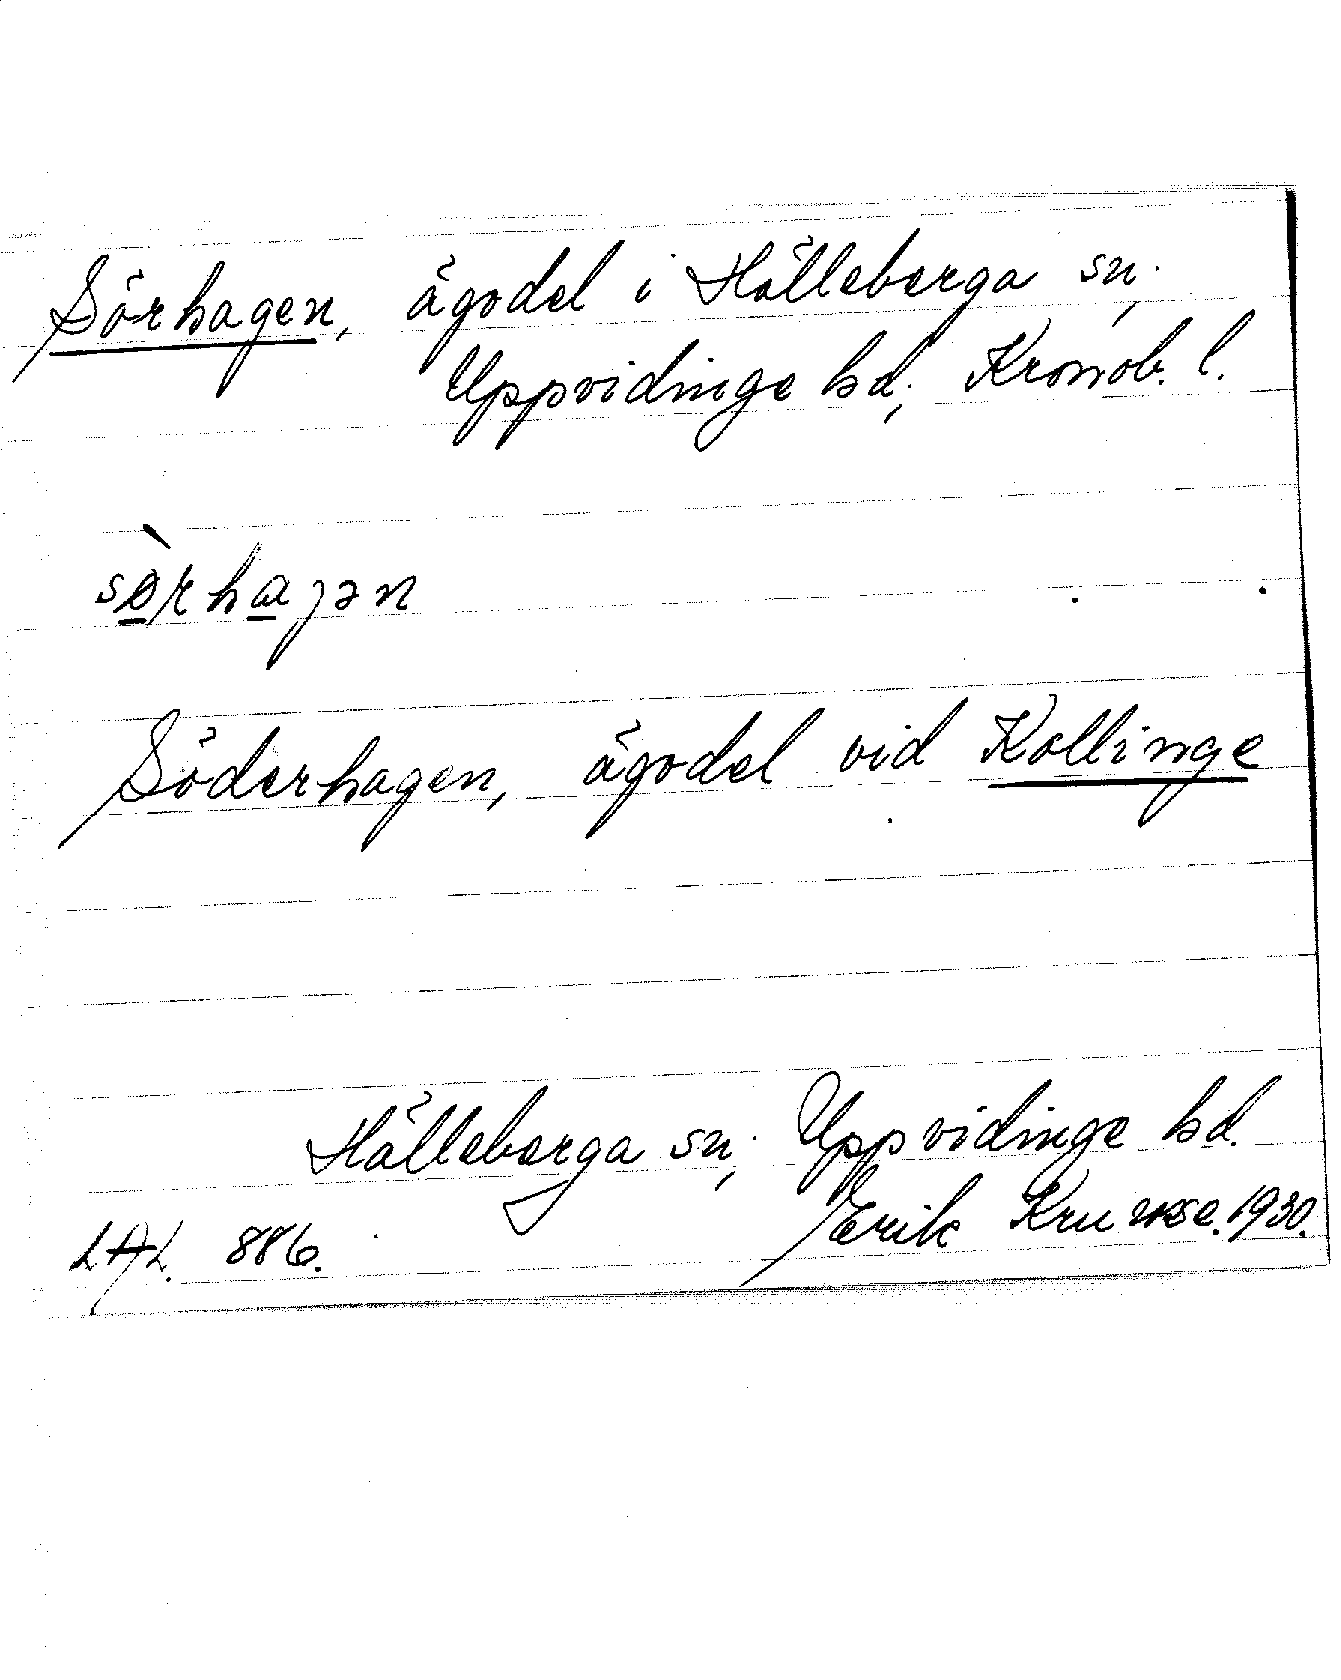 Sörhagen, ägodel i Hälleberga sn;
Uppvidinge hd; Kronob. l.
sørhaʒən
Söderhagen, ägodel vid Kollinge
Hälleberga sn; Uppvidinge hd.
LAL. 886. Erik Kruuse. 1930.